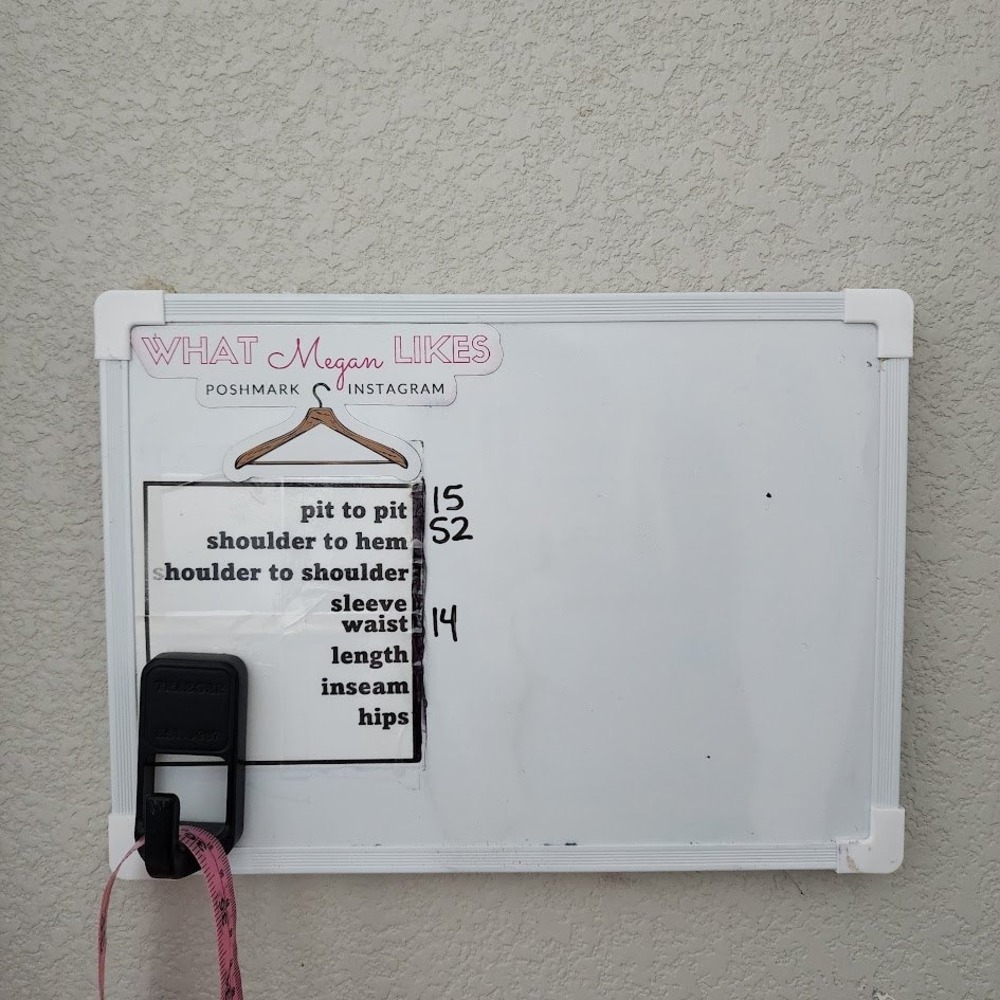 WHAT Megan LIKES
POSHMARK INSTAGRAM
pit to pit 15
shoulder to hem 52
shoulder to shoulder
sleeve
waist 14
length
inseam
hips